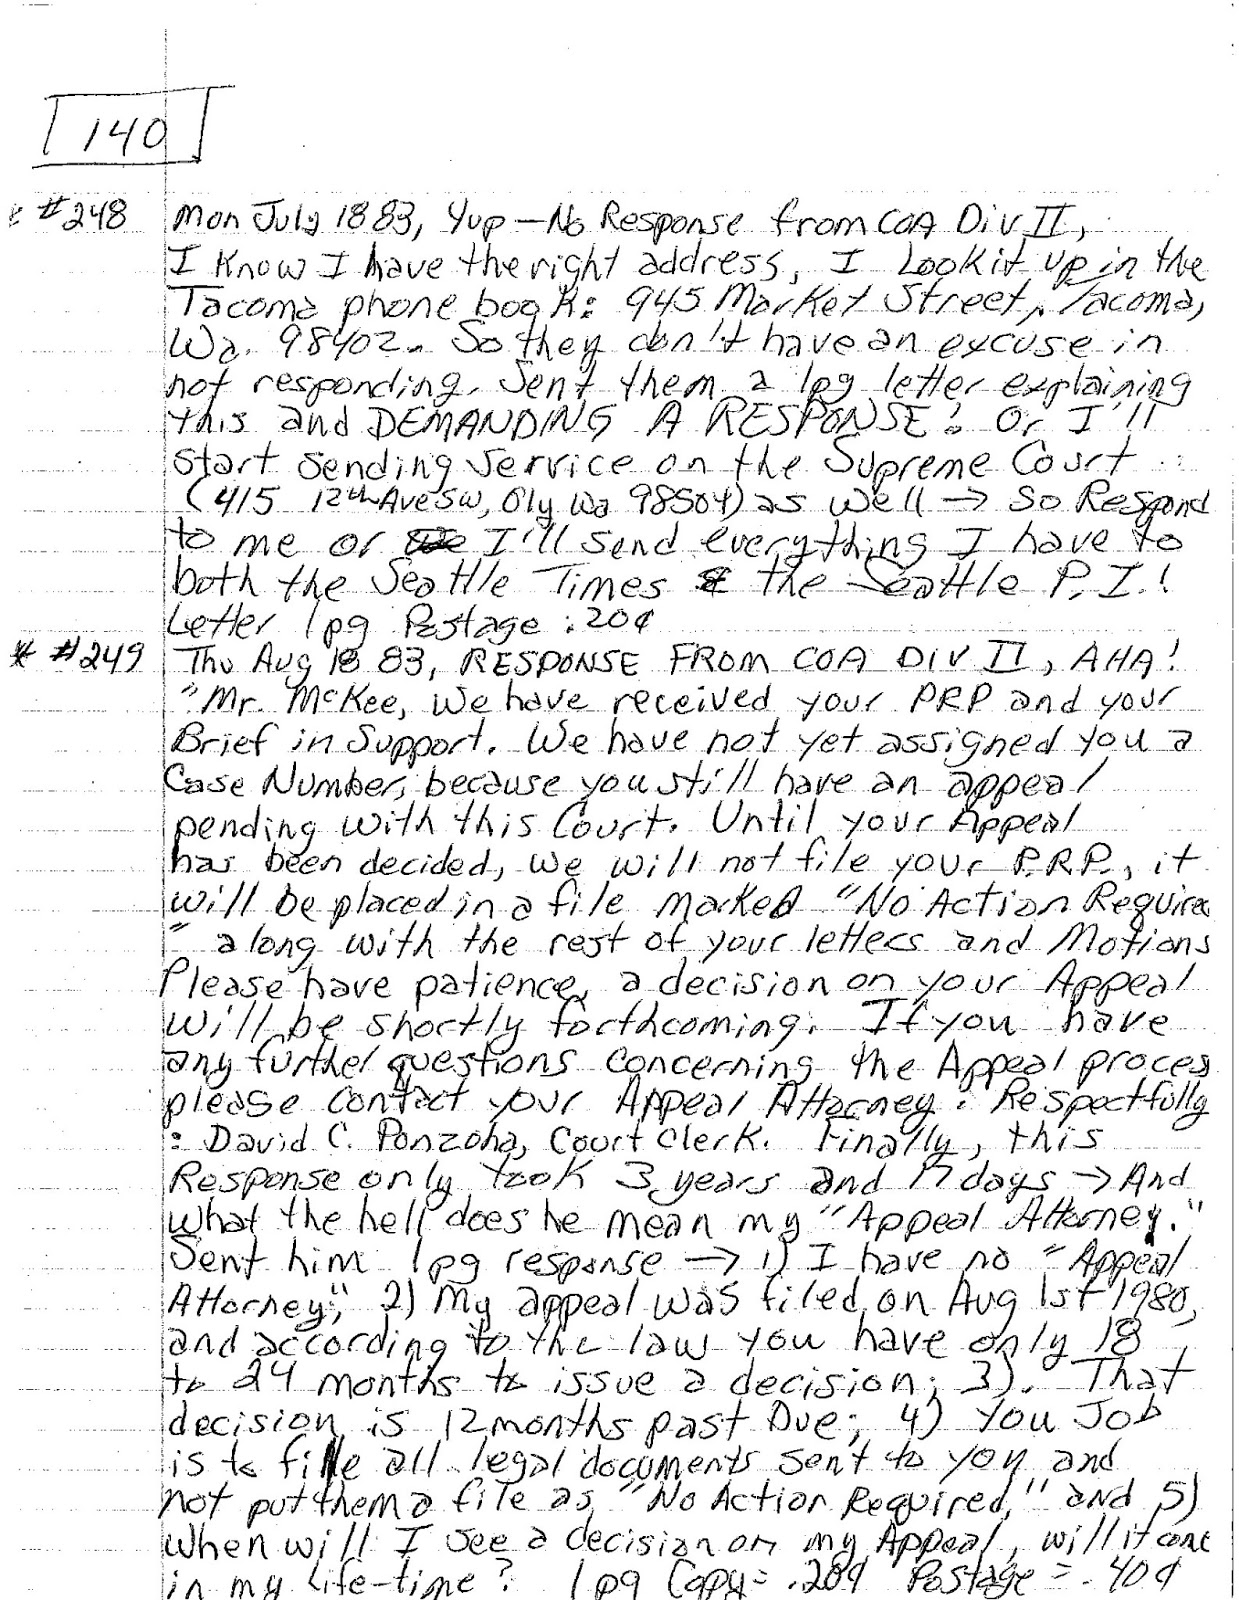 140
* #248 Mon July 18 83, Yup — No Response from COA Div II,
I Know I have the right address, I Look it up in the
Tacoma phone book: 945 Market Street, Tacoma,
Wa. 98402. So they don't have an excuse in
not responding. Sent them a 1pg letter explaining
this and DEMANDING A RESPONSE! Or I'll
start sending service on the Supreme Court
(415 12th Ave SW, Oly Wa 98504) as well → So Respond
to me or I'll send everything I have to
both the Seattle Times & the Seattle P.I.!
Letter 1pg Postage: .20¢
* #249 Thu Aug 18 83, RESPONSE FROM COA DIV II, AHA!
"Mr. McKee, We have received your PRP and your
Brief in Support. We have not yet assigned you a
Case Number, because you still have an appeal
pending with this Court. Until your Appeal
has been decided, we will not file your P.R.P., it
will be placed in a file marked "No Action Required
" along with the rest of your letters and Motions
Please have patience, a decision on your Appeal
will be shortly forthcoming. If you have
any further questions concerning the Appeal proces
please contact your Appeal Attorney. Respectfully
: David C. Ponzoha, Court Clerk. Finally, this
Response only took 3 years and 17 days → And
what the hell does he mean my "Appeal Attorney."
Sent him 1pg response → 1) I have no "Appeal
Attorney", 2) My appeal was filed on Aug 1st 1980,
and according to the law you have only 18
to 24 months to issue a decision; 3). That
decision is 12 months past Due; 4) You Job
is to file all legal documents sent to you and
not put them a file as "No Action Required," and 5)
When will I see a decision on my Appeal, will it come
in my life-time? 1pg Copy = .20¢ Postage = .40¢